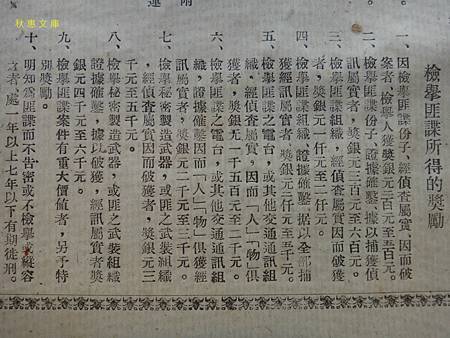 秋惠文庫
附
檢舉匪諜所得的獎勵
一、因檢舉匪諜份子、經偵查屬實、因而破
案者，檢舉人獲獎銀元百元至百元。
二、檢舉匪諜份子、證據確鑿、據以捕獲偵
訊屬實者，獎銀元三百元至六百元。
三、檢舉匪諜組織，經偵查屬實因而破獲
者，獎銀元一仟元至二仟元。
四、檢舉匪諜組織、證據確鑿、據以全部捕
獲經訊屬實者，獎銀元二仟元至千元。
五、檢舉匪諜之電台，或其他交通通訊組
織，經偵查屬實，因而「人」「物」俱
獲者，獎銀元一千五百元至二千元。
六、檢舉匪諜之電台，或其他交通通訊組
織，證據確鑿因而「人」「物」俱獲經
訊屬實者，獎銀元二千元至三千元。
七、檢舉秘密製造武器，或匪之武裝組織
，經偵查屬實因而破獲者，獎銀元三
千元至五千元。
八、檢舉秘密製造武器，或匪之武裝組織
證據確鑿，據以破獲，經訊屬實者獎
銀元四千元至六千元。
九、檢舉匪諜案件有重大價值者，另予特
別獎勵。
十、明知為匪諜而不告密或不檢舉或縱容
之者，處一年以上七年以下有期徒刑。